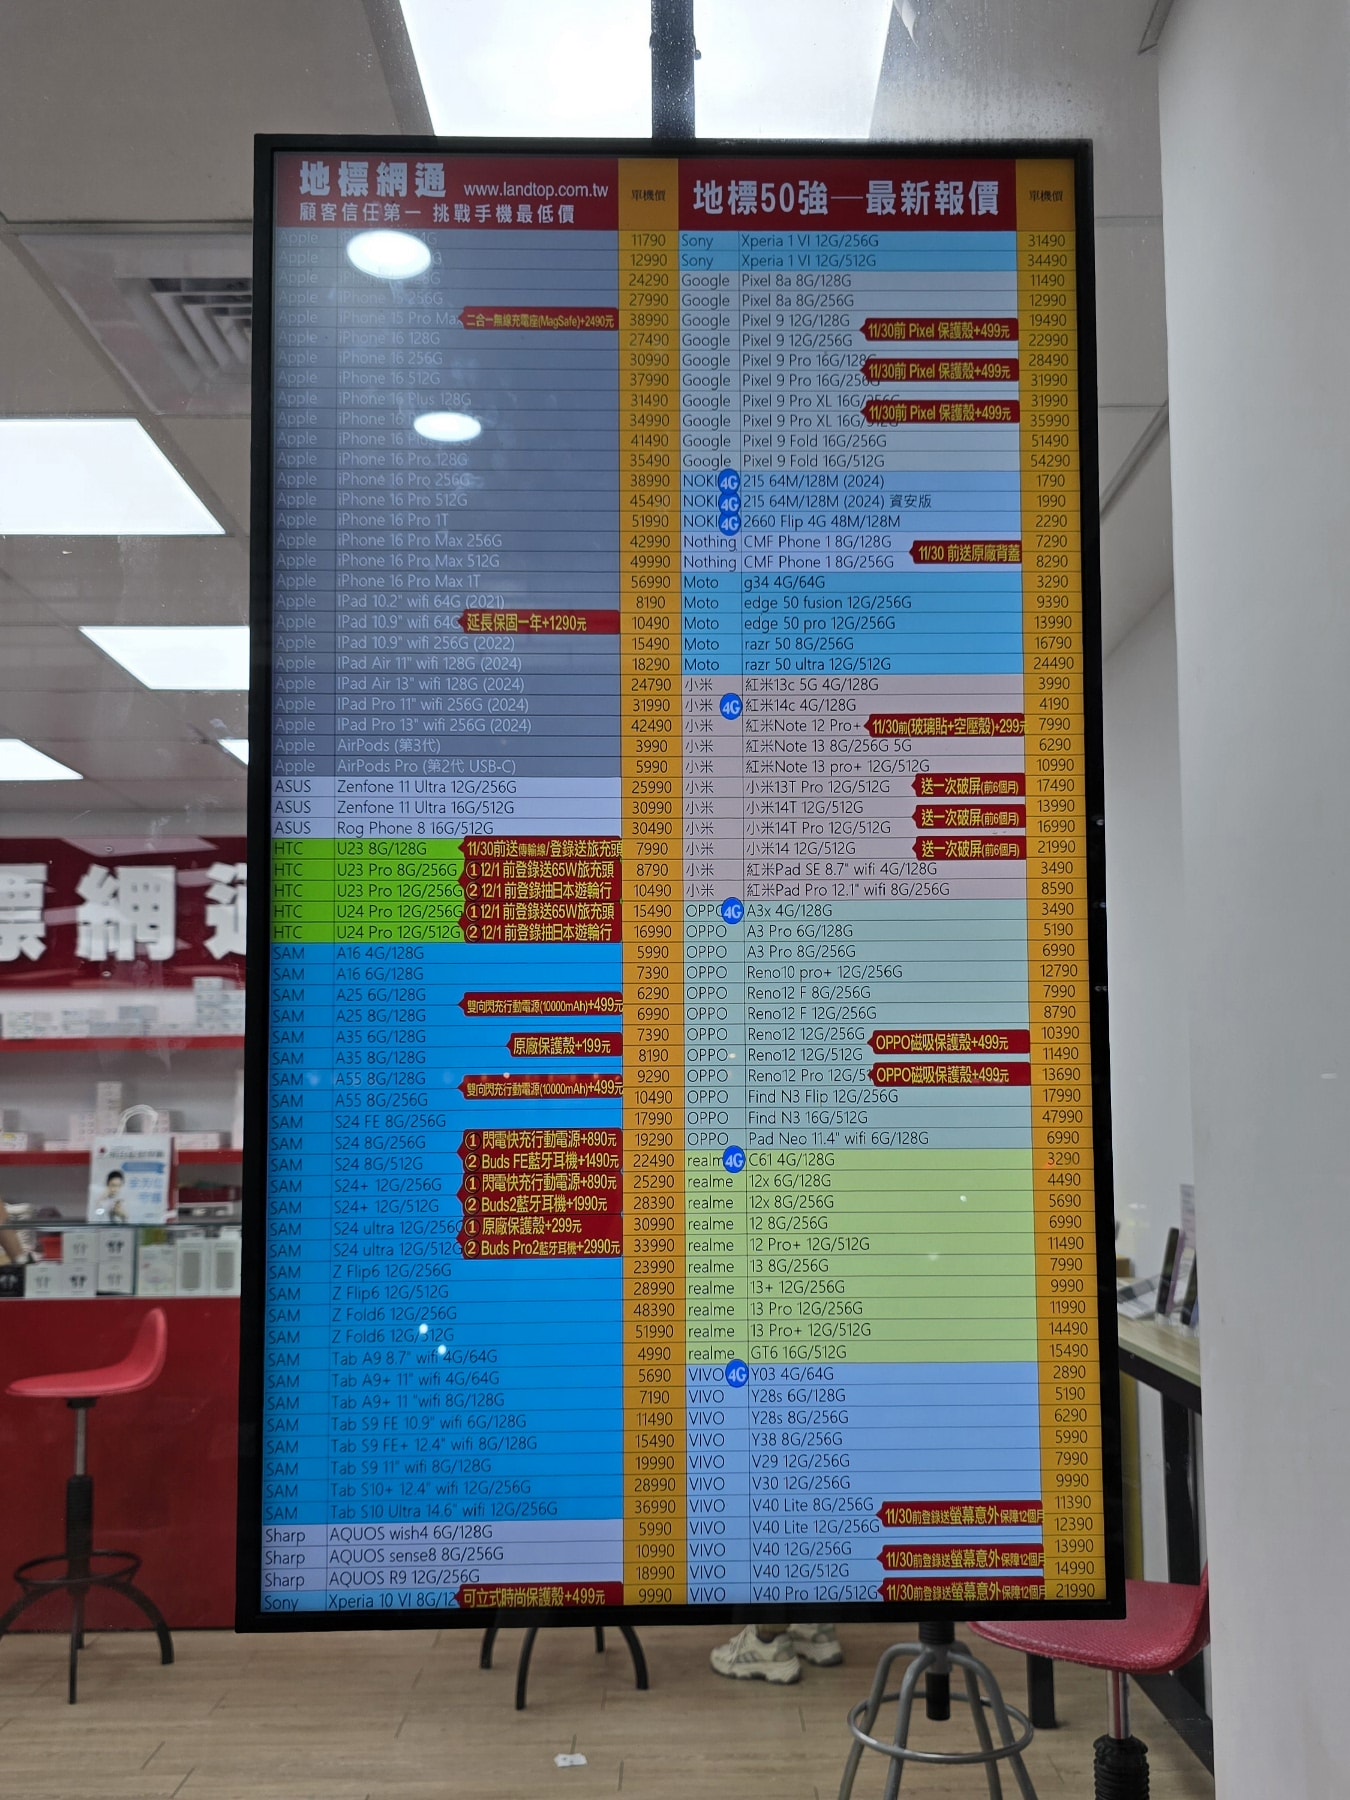 地標網通 www.landtop.com.tw
顧客信任第一 挑戰手機最低價
單機價
地標50強—最新報價
單機價
Apple 11790
Apple 12990
Apple 24290
Apple iPhone 15 256G 27990
Apple iPhone 15 Pro Ma 二合一無線充電座(MagSafe)+2490元 38990
Apple iPhone 16 128G 27490
Apple iPhone 16 256G 30990
Apple iPhone 16 512G 37990
Apple iPhone 16 Plus 128G 31490
Apple iPhone 16 34990
Apple iPhone 16 41490
Apple iPhone 16 Pro 128G 35490
Apple iPhone 16 Pro 256G 38990
Apple iPhone 16 Pro 512G 45490
Apple iPhone 16 Pro 1T 51990
Apple iPhone 16 Pro Max 256G 42990
Apple iPhone 16 Pro Max 512G 49990
Apple iPhone 16 Pro Max 1T 56990
Apple IPad 10.2" wifi 64G (2021) 8190
Apple IPad 10.9" wifi 64G 延長保固一年+1290元 10490
Apple IPad 10.9" wifi 256G (2022) 15490
Apple IPad Air 11" wifi 128G (2024) 18290
Apple IPad Air 13" wifi 128G (2024) 24790
Apple IPad Pro 11" wifi 256G (2024) 31990
Apple IPad Pro 13" wifi 256G (2024) 42490
Apple AirPods (第3代) 3990
Apple AirPods Pro (第2代 USB-C) 5990
ASUS Zenfone 11 Ultra 12G/256G 25990
ASUS Zenfone 11 Ultra 16G/512G 30990
ASUS Rog Phone 8 16G/512G 30490
HTC U23 8G/128G 11/30前送傳輸線/登錄送旅充頭 7990
HTC U23 Pro 8G/256G ①12/1 前登錄送65W旅充頭 8790
HTC U23 Pro 12G/256G ②12/1 前登錄抽日本遊輪行 10490
HTC U24 Pro 12G/256G ①12/1 前登錄送65W旅充頭 15490
HTC U24 Pro 12G/512G ②12/1 前登錄抽日本遊輪行 16990
SAM A16 4G/128G 5990
SAM A16 6G/128G 7390
SAM A25 6G/128G 6290
雙向閃充行動電源(10000mAh)+499元
SAM A25 8G/128G 6990
SAM A35 6G/128G 7390
原廠保護殼+199元
SAM A35 8G/128G 8190
SAM A55 8G/128G 9290
雙向閃充行動電源(10000mAh)+499元
SAM A55 8G/256G 10490
SAM S24 FE 8G/256G 17990
SAM S24 8G/256G ① 閃電快充行動電源+890元 19290
SAM S24 8G/512G ② Buds FE藍牙耳機+1490元 22490
SAM S24+ 12G/256G ① 閃電快充行動電源+890元 25290
SAM S24+ 12G/512G ② Buds2藍牙耳機+1990元 28390
SAM S24 ultra 12G/256G ① 原廠保護殼+299元 30990
SAM S24 ultra 12G/512G ② Buds Pro2藍牙耳機+2990元 33990
SAM Z Flip6 12G/256G 23990
SAM Z Flip6 12G/512G 28990
SAM Z Fold6 12G/256G 48390
SAM Z Fold6 12G/512G 51990
SAM Tab A9 8.7" wifi 4G/64G 4990
SAM Tab A9+ 11" wifi 4G/64G 5690
SAM Tab A9+ 11 "wifi 8G/128G 7190
SAM Tab S9 FE 10.9" wifi 6G/128G 11490
SAM Tab S9 FE+ 12.4" wifi 8G/128G 15490
SAM Tab S9 11" wifi 8G/128G 19990
SAM Tab S10+ 12.4" wifi 12G/256G 28990
SAM Tab S10 Ultra 14.6" wifi 12G/256G 36990
Sharp AQUOS wish4 6G/128G 5990
Sharp AQUOS sense8 8G/256G 10990
Sharp AQUOS R9 12G/256G 18990
Sony Xperia 10 VI 8G/12 可立式時尚保護殼+499元 9990
Sony Xperia 1 VI 12G/256G 31490
Sony Xperia 1 VI 12G/512G 34490
Google Pixel 8a 8G/128G 11490
Google Pixel 8a 8G/256G 12990
Google Pixel 9 12G/128G 19490
11/30前 Pixel 保護殼+499元
Google Pixel 9 12G/256G 22990
Google Pixel 9 Pro 16G/128G 28490
11/30前 Pixel 保護殼+499元
Google Pixel 9 Pro 16G/256G 31990
Google Pixel 9 Pro XL 16G/256G 31990
11/30前 Pixel 保護殼+499元
Google Pixel 9 Pro XL 16G/512G 35990
Google Pixel 9 Fold 16G/256G 51490
Google Pixel 9 Fold 16G/512G 54290
NOKI 4G 215 64M/128M (2024) 1790
NOKI 4G 215 64M/128M (2024) 資安版 1990
NOKI 4G 2660 Flip 4G 48M/128M 2290
Nothing CMF Phone 1 8G/128G 7290
11/30 前送原廠背蓋
Nothing CMF Phone 1 8G/256G 8290
Moto g34 4G/64G 3290
Moto edge 50 fusion 12G/256G 9390
Moto edge 50 pro 12G/256G 13990
Moto razr 50 8G/256G 16790
Moto razr 50 ultra 12G/512G 24490
小米 紅米13c 5G 4G/128G 3990
小米 4G 紅米14c 4G/128G 4190
小米 紅米Note 12 Pro+ 11/30前(玻璃貼+空壓殼)+299元 7990
小米 紅米Note 13 8G/256G 5G 6290
小米 紅米Note 13 pro+ 12G/512G 10990
小米 小米13T Pro 12G/512G 送一次破屏(前6個月) 17490
小米 小米14T 12G/512G 13990
送一次破屏(前6個月)
小米 小米14T Pro 12G/512G 16990
小米 小米14 12G/512G 送一次破屏(前6個月) 21990
小米 紅米Pad SE 8.7" wifi 4G/128G 3490
小米 紅米Pad Pro 12.1" wifi 8G/256G 8590
OPPO 4G A3x 4G/128G 3490
OPPO A3 Pro 6G/128G 5190
OPPO A3 Pro 8G/256G 6990
OPPO Reno10 pro+ 12G/256G 12790
OPPO Reno12 F 8G/256G 7990
OPPO Reno12 F 12G/256G 8790
OPPO Reno12 12G/256G 10390
OPPO磁吸保護殼+499元
OPPO Reno12 12G/512G 11490
OPPO Reno12 Pro 12G/51 OPPO磁吸保護殼+499元 13690
OPPO Find N3 Flip 12G/256G 17990
OPPO Find N3 16G/512G 47990
OPPO Pad Neo 11.4" wifi 6G/128G 6990
realm 4G C61 4G/128G 3290
realme 12x 6G/128G 4490
realme 12x 8G/256G 5690
realme 12 8G/256G 6990
realme 12 Pro+ 12G/512G 11490
realme 13 8G/256G 7990
realme 13+ 12G/256G 9990
realme 13 Pro 12G/256G 11990
realme 13 Pro+ 12G/512G 14490
realme GT6 16G/512G 15490
VIVO 4G Y03 4G/64G 2890
VIVO Y28s 6G/128G 5190
VIVO Y28s 8G/256G 6290
VIVO Y38 8G/256G 5990
VIVO V29 12G/256G 7990
VIVO V30 12G/256G 9990
VIVO V40 Lite 8G/256G 11390
11/30前登錄送螢幕意外保障12個月
VIVO V40 Lite 12G/256G 12390
VIVO V40 12G/256G 13990
11/30前登錄送螢幕意外保障12個月
VIVO V40 12G/512G 14990
VIVO V40 Pro 12G/512G 11/30前登錄送螢幕意外保障12個月 21990
標網通